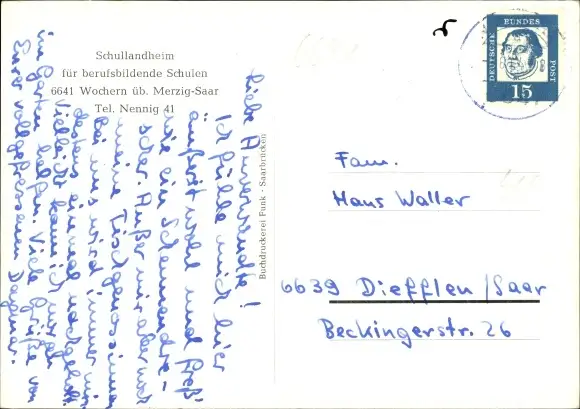 Schullandheim
für berufsbildende Schulen
6641 Wochern üb. Merzig-Saar
Tel. Nennig 41
Liebe Anverwandte!
Ich fühle mich hier
äußerst wohl und freß
wie ein Scheunendre-
scher. Außer mir aber noch
meine Tischgenossinnen
Bei uns wird immer min
destens einmal nachgeholt.
Vielleicht kann ich mal
im Garten helfen. Viele Grüße von
Eurer vollgefressenen Dagmar.
Buchdruckerei Funk · Saarbrücken
DEUTSCHE BUNDES POST
15
Fam.
Hans Waller
6639 Diefflen/Saar
Beckingerstr. 26